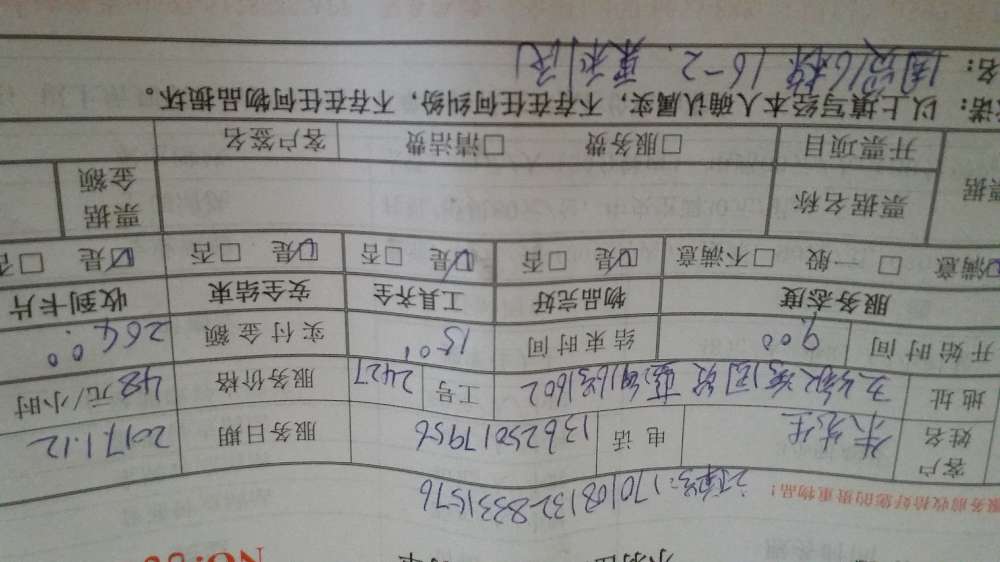 NO:
服务前收拾好您的贵重物品！
订单号：170108132-8831576
客户姓名 朱先生 电话 13625017956 服务日期 2017.1.12
地址 蓝湾16号1602 工号 2427 服务价格 48元/小时
开始时间 9:00 结束时间 15:01 实付金额 264.00
服务态度 物品完好 工具齐全 安全结束 收到卡片
☑满意 □一般 □不满意 ☑是 □否 ☑是 □否 ☑是 □否 ☑是 □否
票据 票据名称 票据金额
开票项目 □服务费 □清洁费 客户签名
诺：以上填写经本人确认属实，不存在任何纠纷，不存在任何物品损坏。
名：16栋16-2